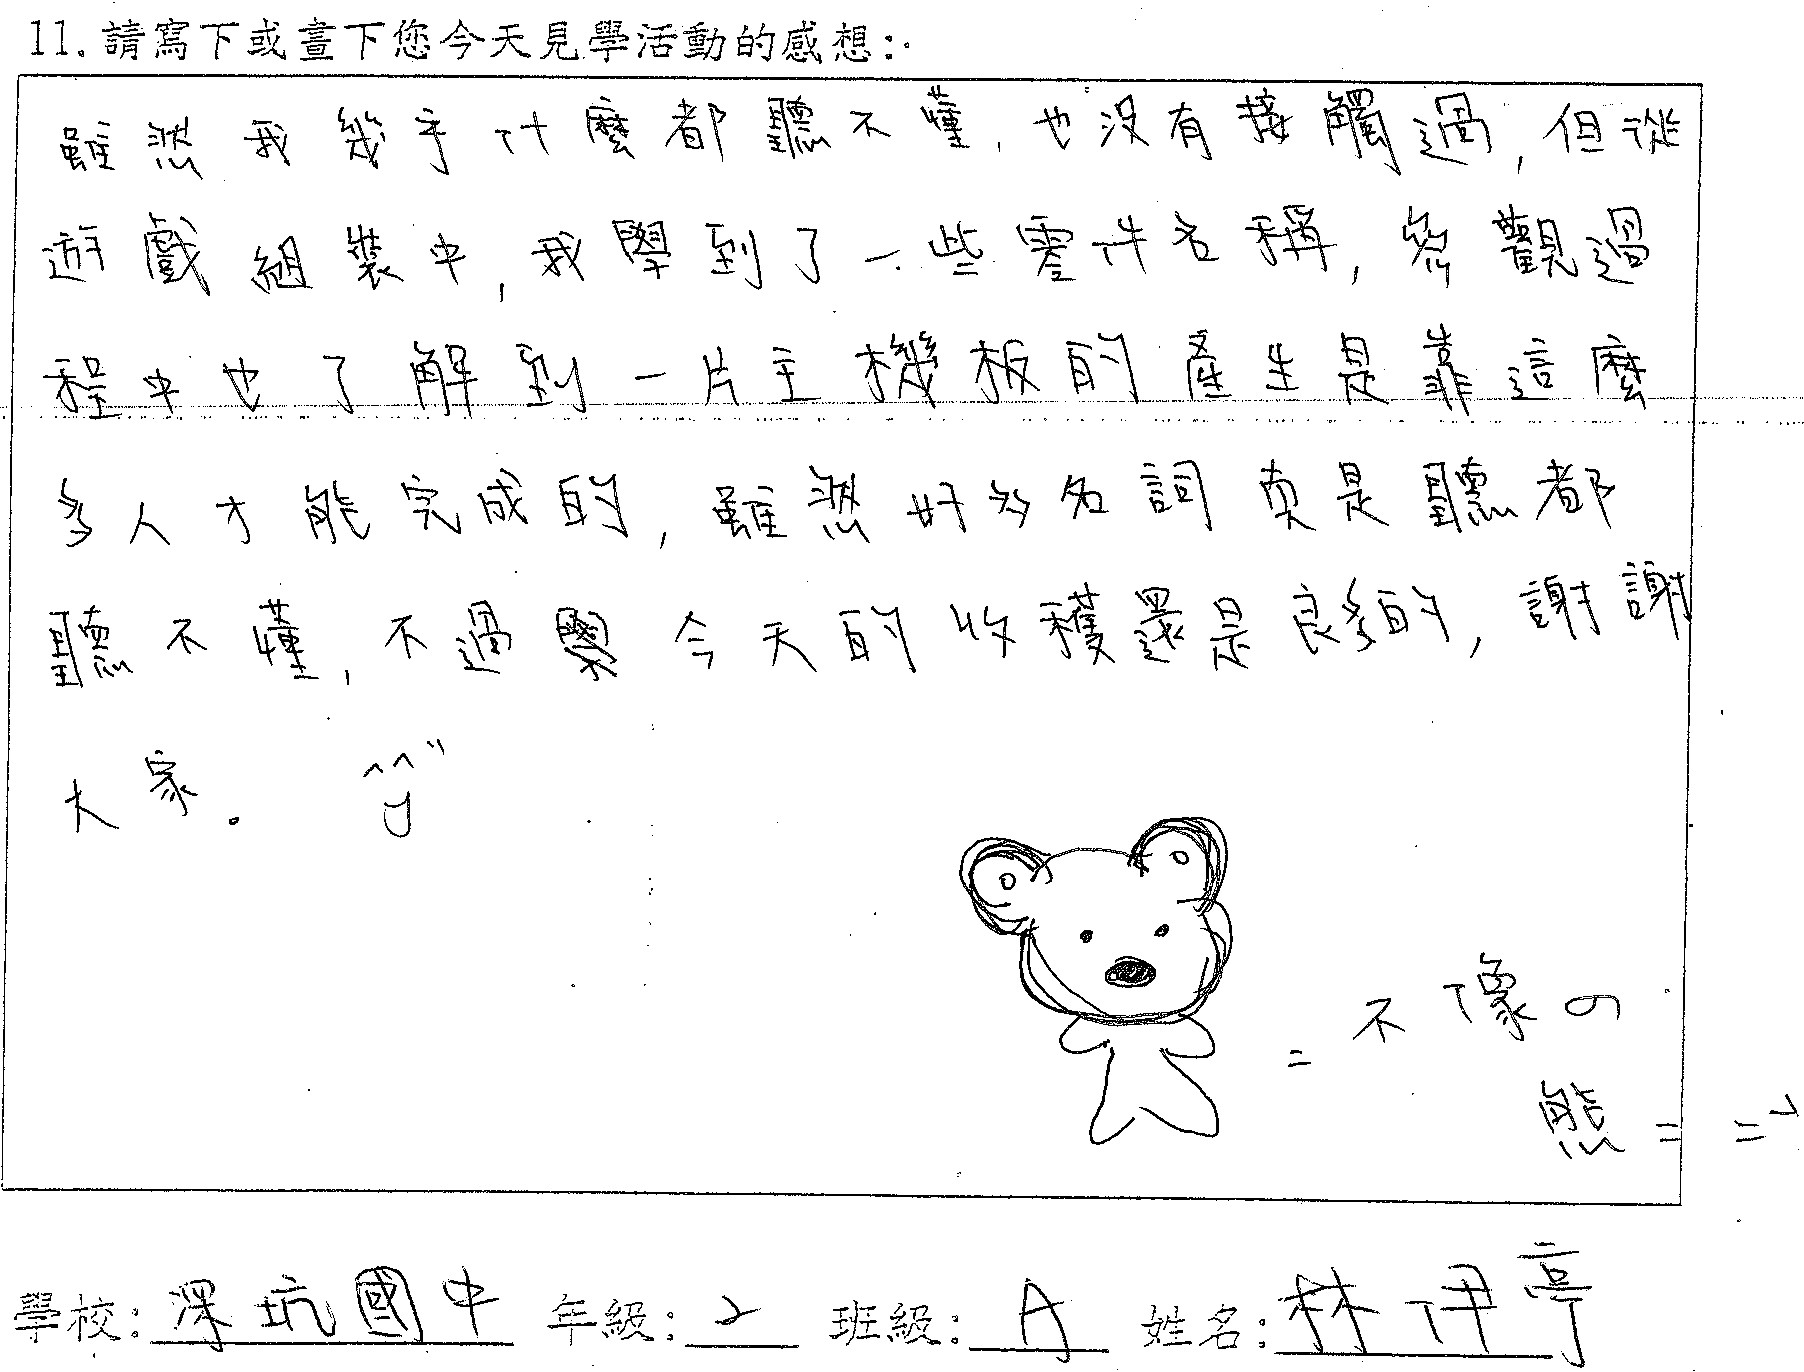 11.請寫下或畫下您今天見學活動的感想:
雖然我幾乎什麼都聽不懂,也沒有接觸過,但從
遊戲組裝中,我學到了一些零件名稱,參觀過
程中也了解到一片主機板的產生是靠這麼
多人才能完成的,雖然好多名詞真是聽都
聽不懂,不過 今天的收穫還是良多的,謝謝
大家。 ^^"
= 不像の
熊 = ="
學校:深坑國中 年級:2 班級:A 姓名:林伊亭